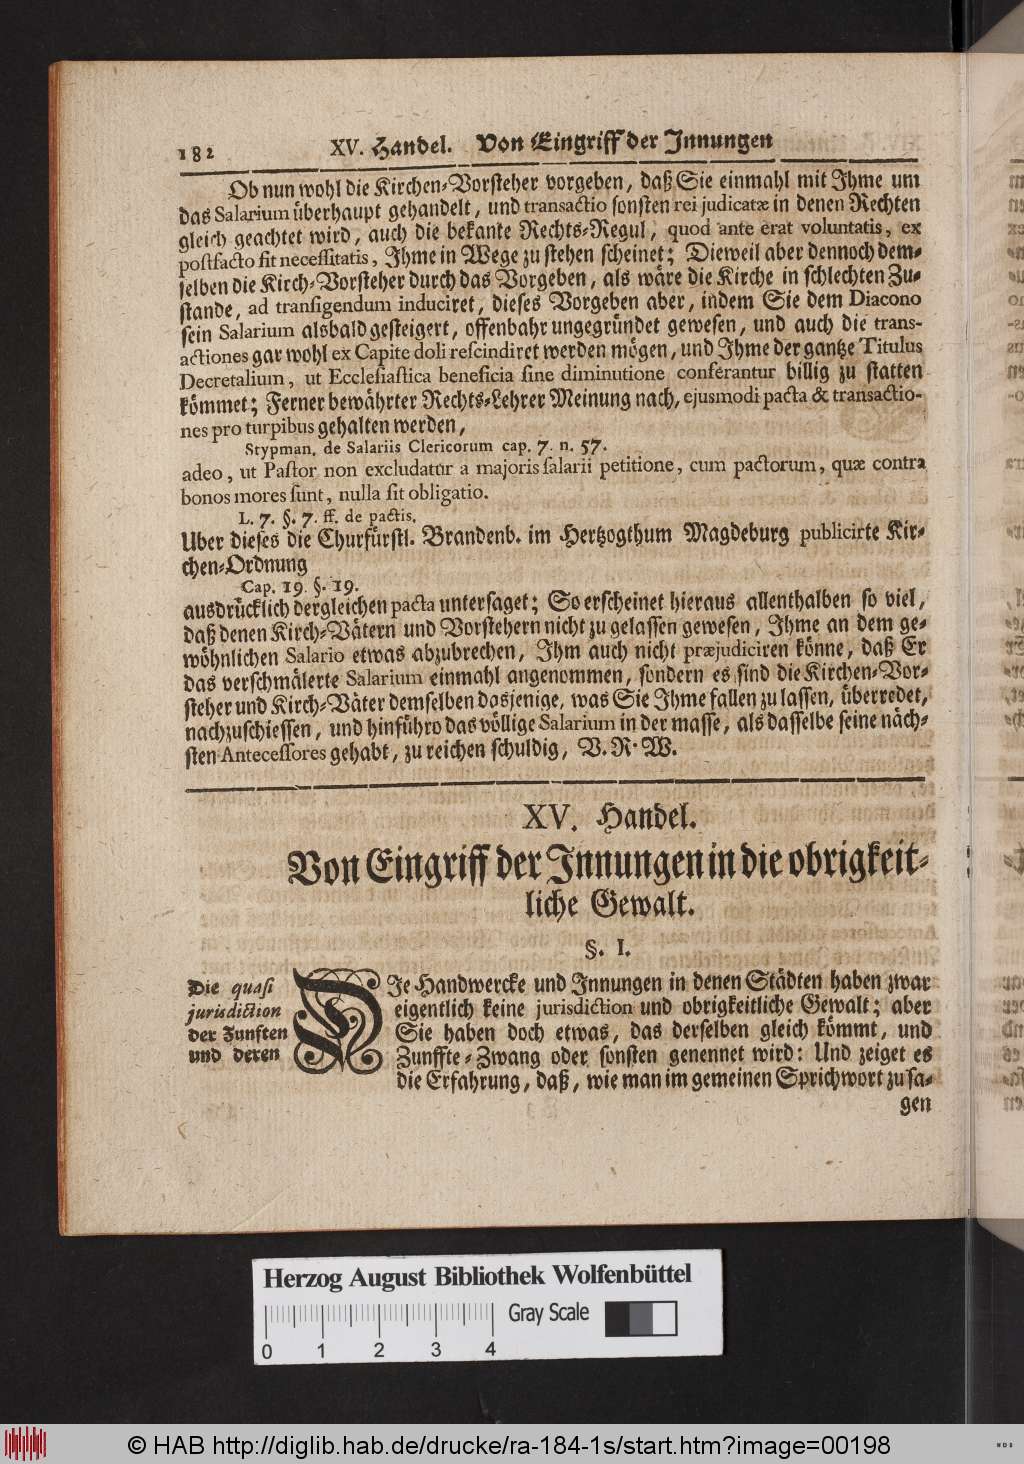 182 XV. Handel. Von Eingriff der Innungen
Ob nun wohl die Kirchen-Vorsteher vorgeben, daß Sie einmahl mit Ihme um
das Salarium überhaupt gehandelt, und transactio sonsten rei judicatæ in denen Rechten
gleich geachtet wird, auch die bekante Rechts-Regul, quod ante erat voluntatis, ex
postfacto fit necessitatis, Ihme in Wege zu stehen scheinet; Dieweil aber dennoch dem-
selben die Kirch-Vorsteher durch das Vorgeben, als wäre die Kirche in schlechten Zu-
stande, ad transigendum induciret, dieses Vorgeben aber, indem Sie dem Diacono
sein Salarium alsbald gesteigert, offenbahr ungegründet gewesen, und auch die trans-
actiones gar wohl ex Capite doli rescindiret werden mögen, und Ihme der gantze Titulus
Decretalium, ut Ecclesiastica beneficia sine diminutione conferantur billig zu statten
kömmet; Ferner bewährter Rechts-Lehrer Meinung nach, ejusmodi pacta & transactio-
nes pro turpibus gehalten werden,
Stypman. de Salariis Clericorum cap. 7. n. 57.
adeo, ut Pastor non excludatur a majoris salarii petitione, cum pactorum, quæ contra
bonos mores sunt, nulla sit obligatio.
L. 7. §. 7. ff. de pactis.
Uber dieses die Churfürstl. Brandenb. im Hertzogthum Magdeburg publicirte Kir-
chen-Ordnung
Cap. 19. §. 19.
ausdrücklich dergleichen pacta untersaget; So erscheinet hieraus allenthalben so viel,
daß denen Kirch-Vätern und Vorstehern nicht zu gelassen gewesen, Ihme an dem ge-
wöhnlichen Salario etwas abzubrechen, Ihm auch nicht præjudiciren könne, daß Er
das verschmälerte Salarium einmahl angenommen, sondern es sind die Kirchen-Vor-
steher und Kirch-Väter demselben dasjenige, was Sie Ihme fallen zu lassen, überredet,
nachzuschiessen, und hinführo das völlige Salarium in der masse, als dasselbe seine näch-
sten Antecessores gehabt, zu reichen schuldig, V. R. W.
XV. Handel.
Von Eingriff der Innungen in die obrigkeit-
liche Gewalt.
§. I.
Die quasi
jurisdiction
der Zunften
und deren
DIe Handwercke und Innungen in denen Städten haben zwar
eigentlich keine jurisdiction und obrigkeitliche Gewalt; aber
Sie haben doch etwas, das derselben gleich kömmt, und
Zunffte-Zwang oder sonsten genennet wird: Und zeiget es
die Erfahrung, daß, wie man im gemeinen Sprichwort zu sa-
gen
Herzog August Bibliothek Wolfenbüttel
Gray Scale
0 1 2 3 4
© HAB http://diglib.hab.de/drucke/ra-184-1s/start.htm?image=00198